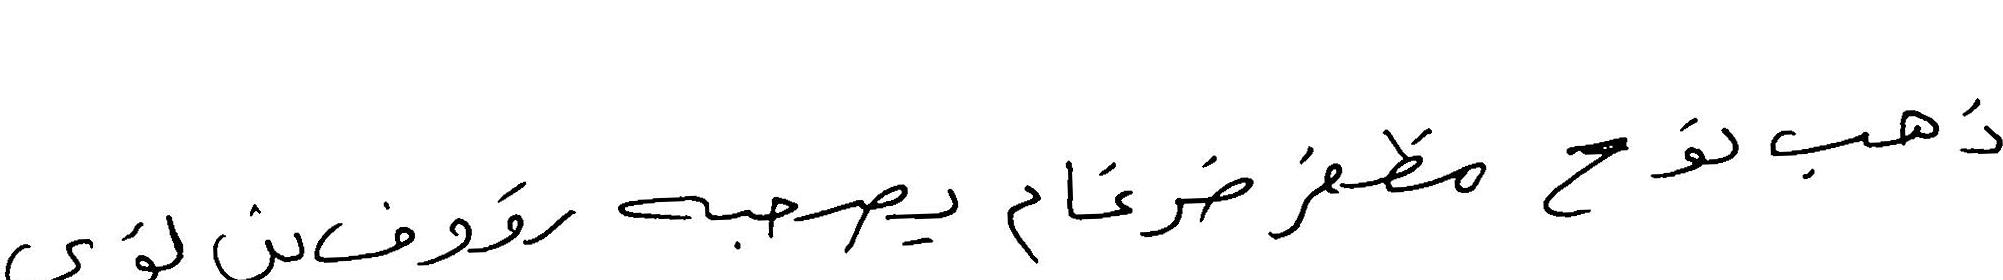 ذهب نوح مظفر ضرغام يصحبه رؤوف بن لؤي